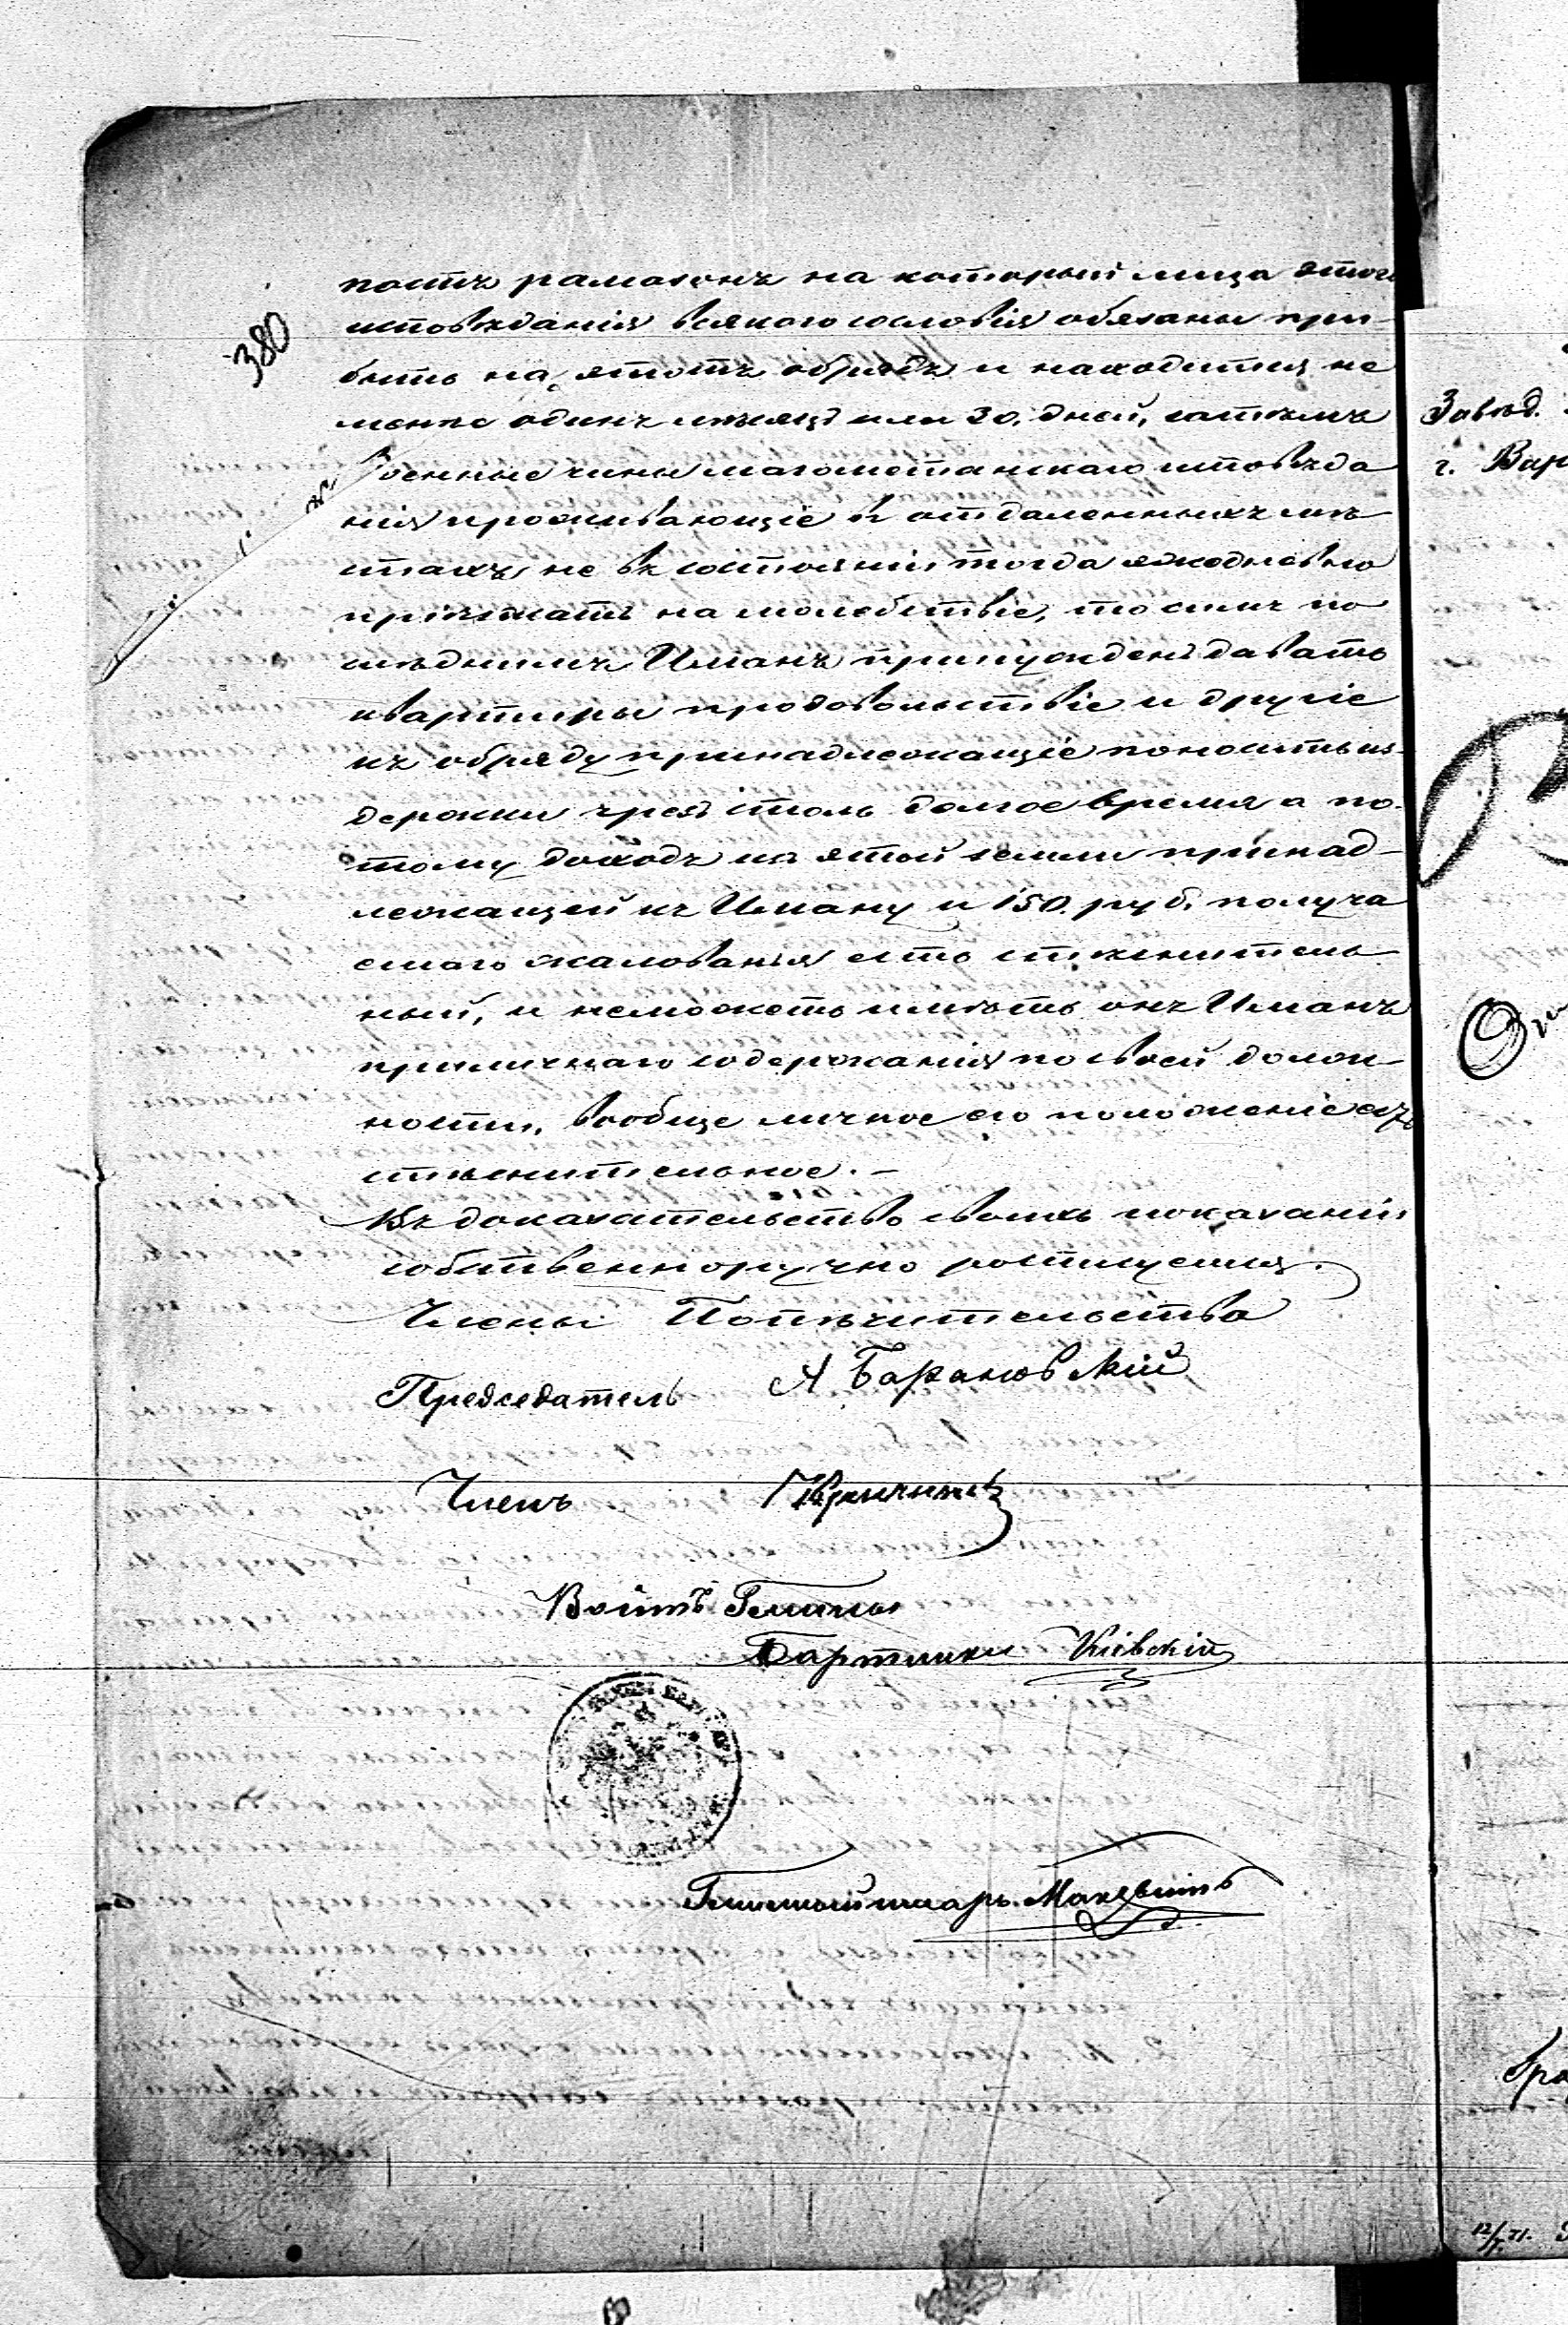 постъ рамазонъ на который лица этого
исповѣданія всякого сословія обязаны при-
380
быть на этотъ обрядъ и находится не
менѣе одинъ мѣсяцъ или 30. дней, затѣмъ
военные чины магометанскаго исповѣда
нія проживающіе въ отдаленныхъ мѣ
стахъ не въ состояніи тогда яжедневно
пріѣзжать на молебствіе, то симъ по
слѣднимъ Иманъ принужденъ давать
квартиры продовольствіе и другіе
къ обряду принадлежащіе поносить из-
держки чрезъ столь долгое время а по-
тому доходъ из этой земли принад-
лежащей къ Иману и 150. руб. получа
емаго жалованія есть стѣснитель-
ный, и неможетъ имѣть онъ Иманъ
приличнаго содержанія по своей долж-
ности, вообще личное его положеніе есть
стѣснительное. —
Въ доказательство своихъ показаній
собственноручно росписуемся.
Члены Попѣчительства
Председатель А Барановскій
Членъ Кричинскій
Войтъ Гмины
Бартники Кіевскій
Гминный писарь. Мацкевичъ
Завѣд.
г. Вар
12/V 71.